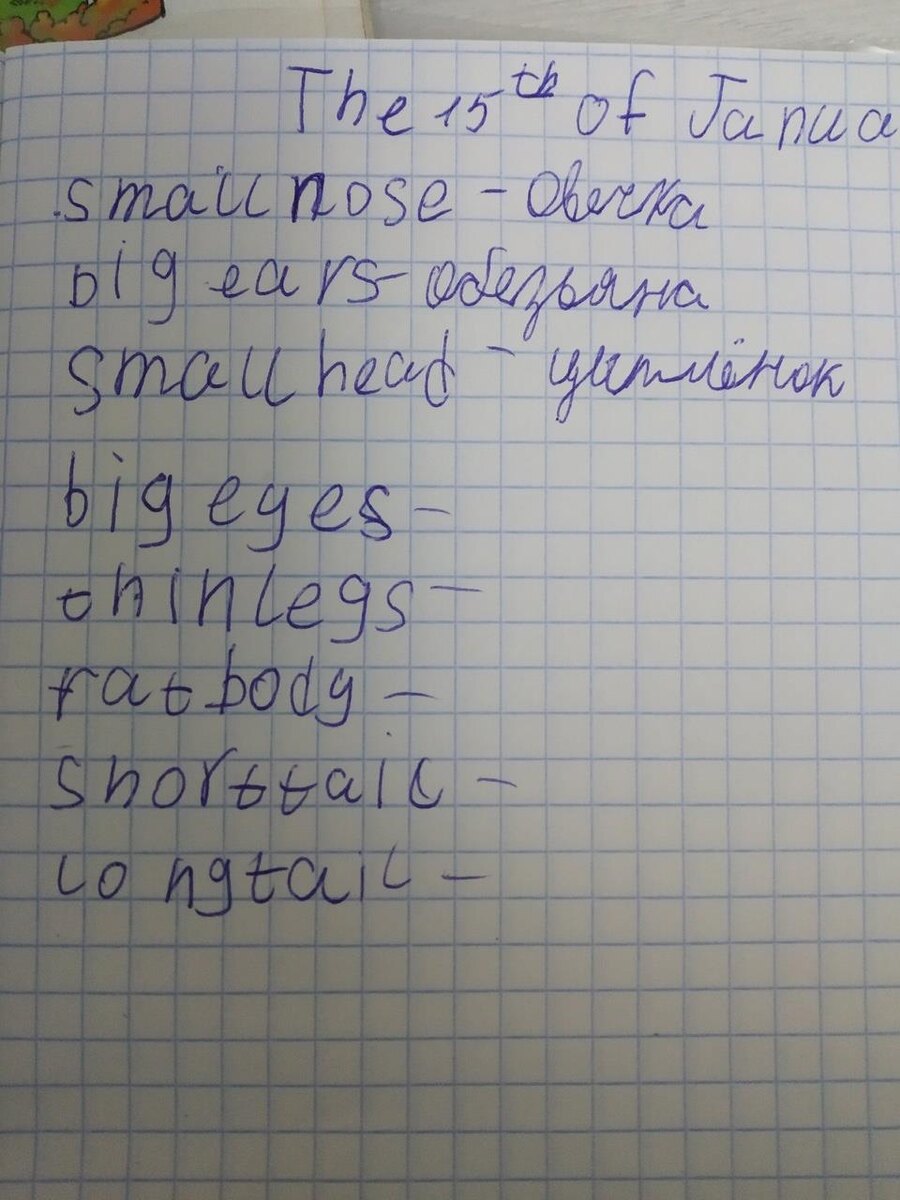 The 15th of Janua
small nose - Овечка
big ears - обезьяна
small head - цыплёнок
big eyes -
thin legs -
fat body -
short tail -
long tail -